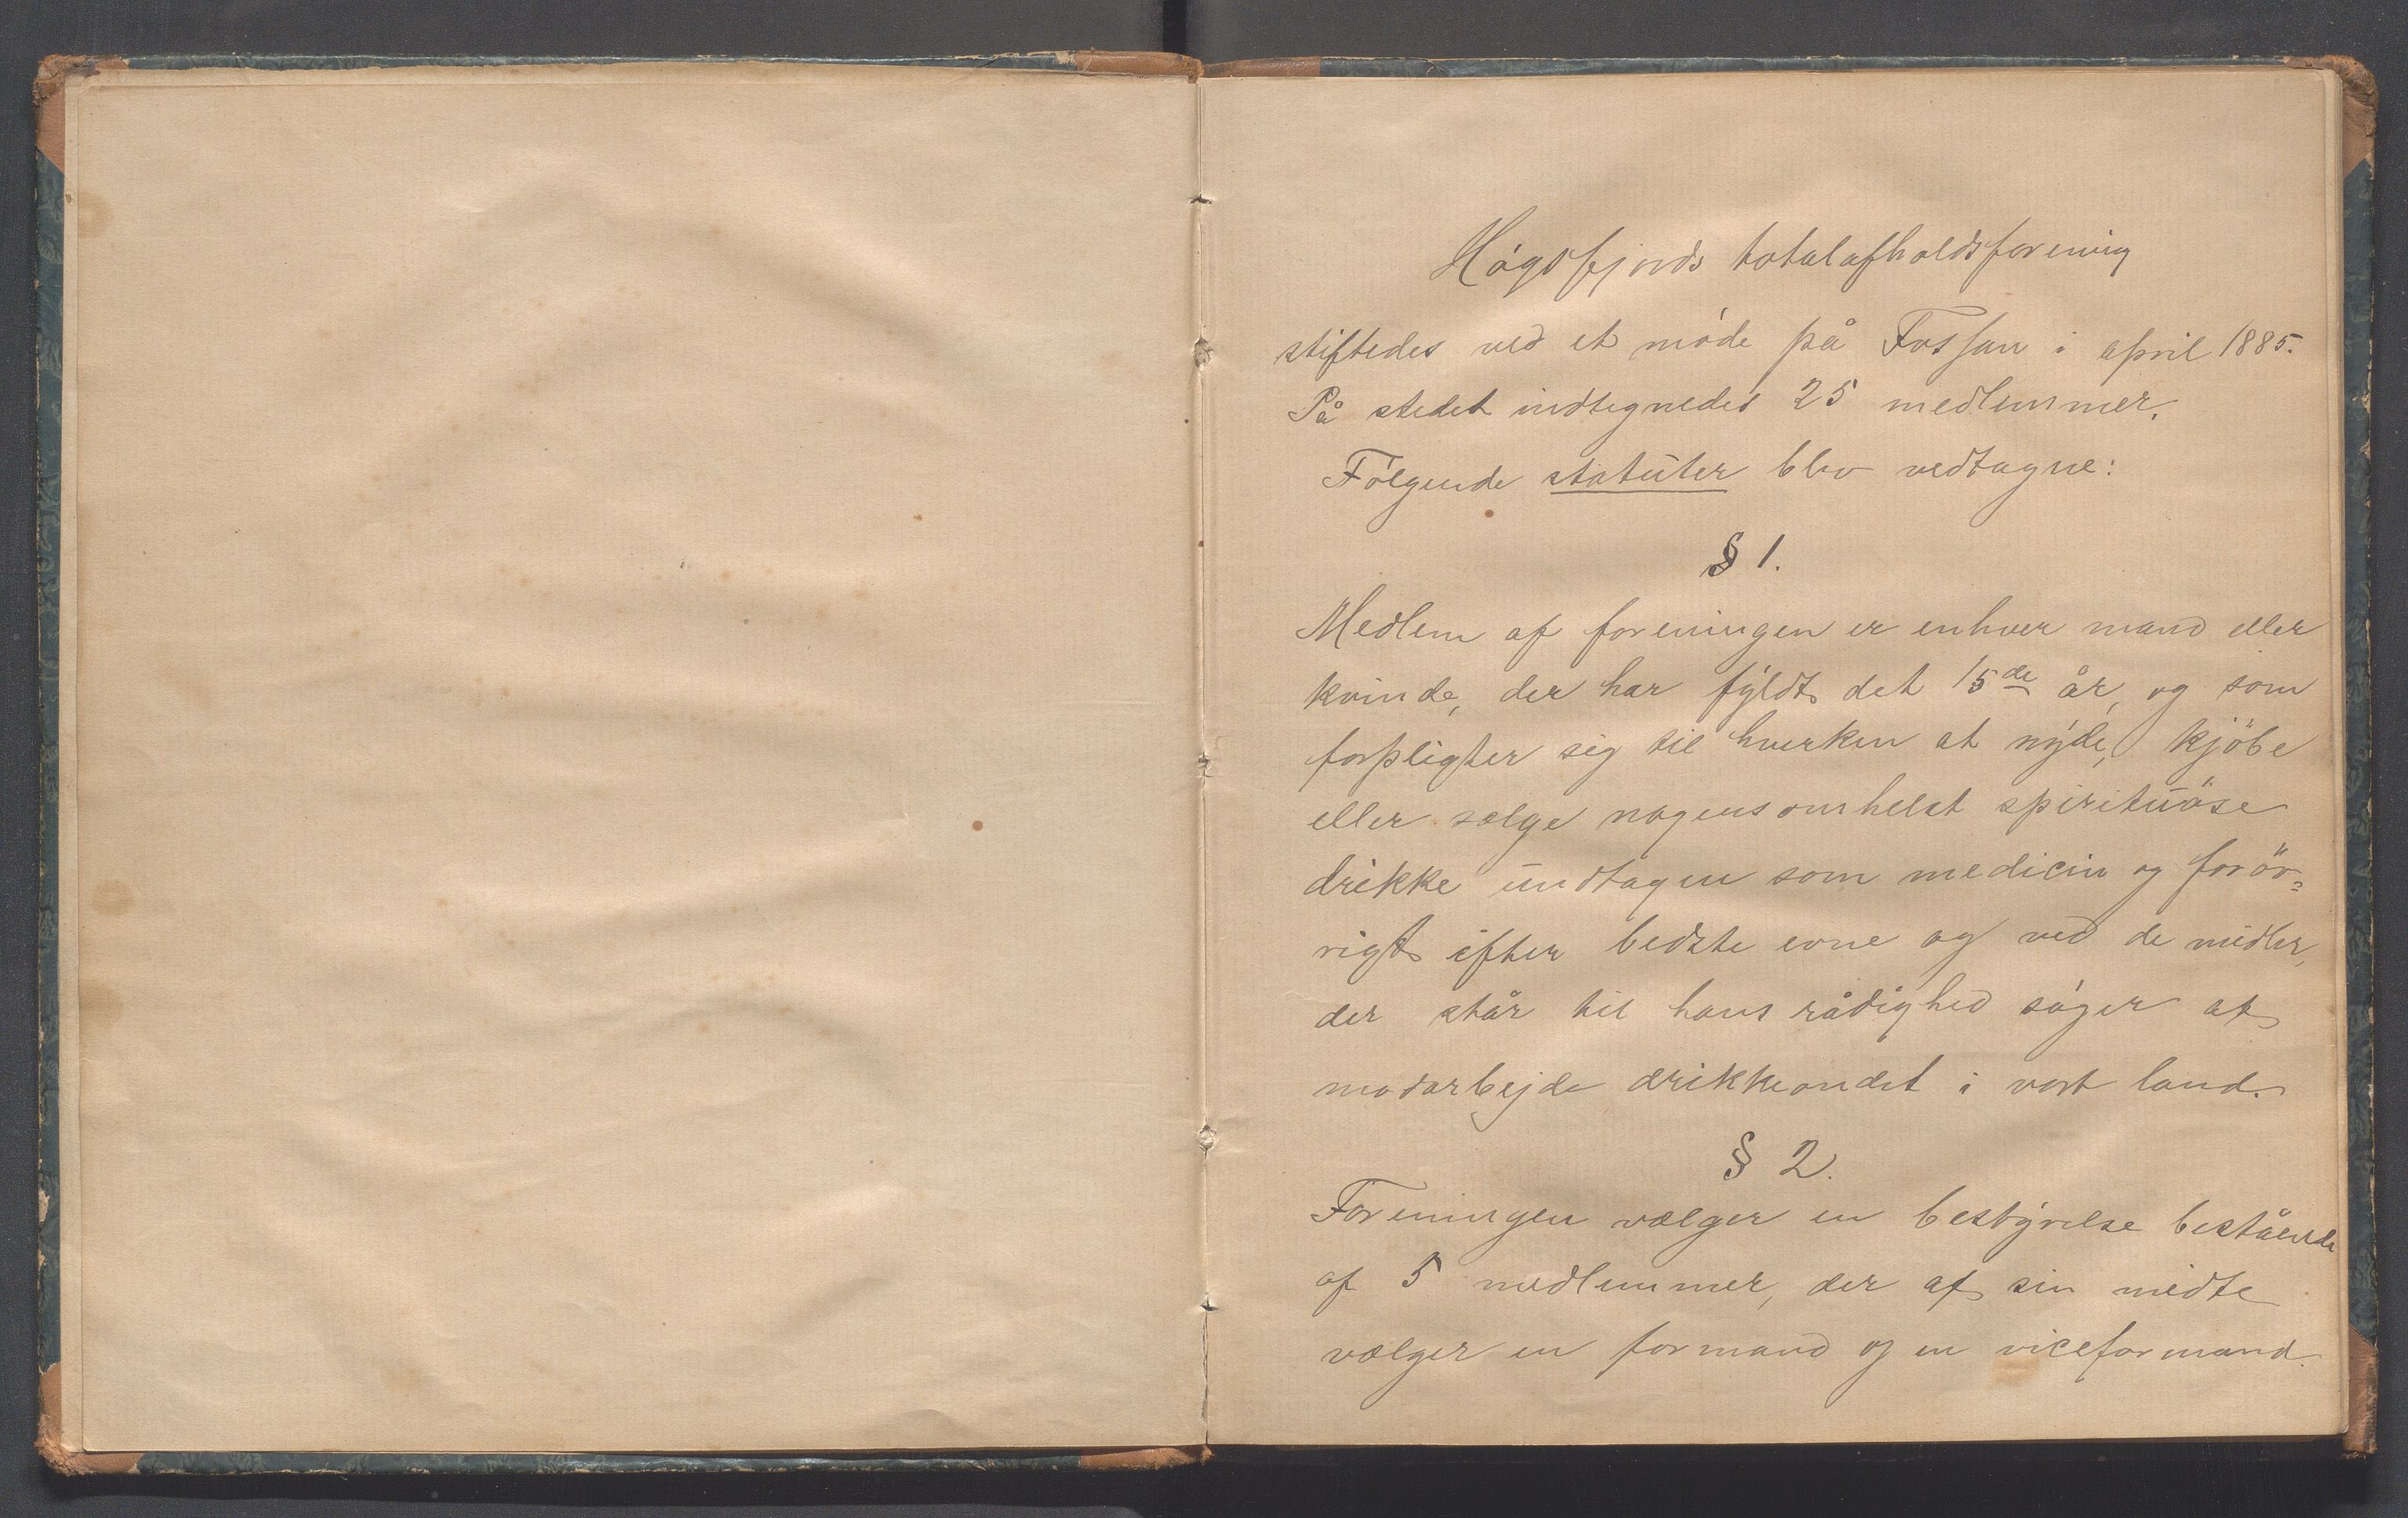 Högsfjords totalafholdsforening
stiftedes ved et möde på Fossan i april 1885.
På stedet indtegnedes 25 medlemmer.
Følgende statuter blev vedtagne:
§ 1.
Medlem af foreningen er enhver mand eller
kvinde, der har fyldt det 15de år, og som
forpligter sig til hverken at nyde, kjöbe
eller sælge nogensomhelst spirituöse
drikke undtagen som medicin og foröv=
rigt efter bedste evne og ved de midler,
der står til hans rådighed söger at
modarbejde drikkeondet i vort land.
§ 2.
Foreningen vælger en bestyrelse bestående
af 5 medlemmer, der af sin midte
vælger en formand og en viceformand.